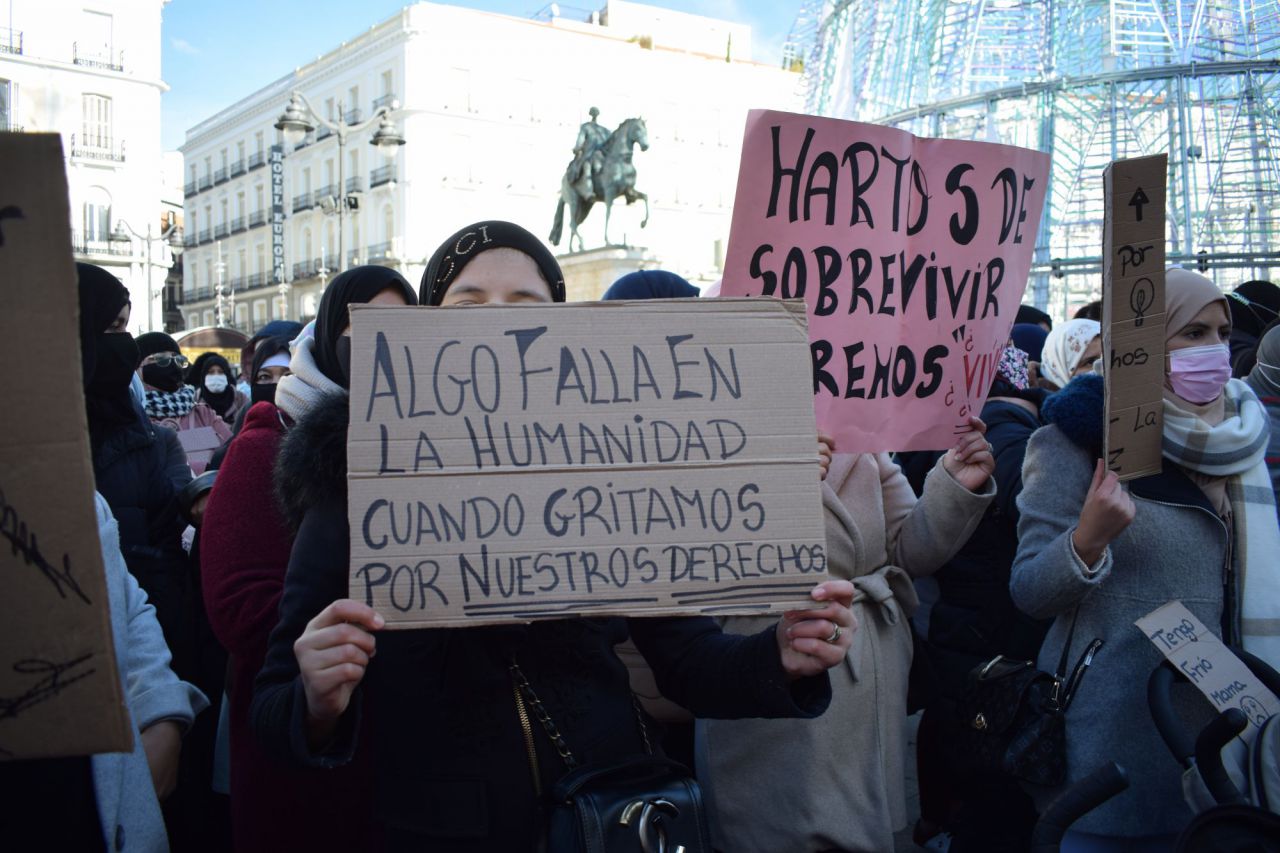 HOTEL EUROPA
CCI
ALGO FALLA EN
LA HUMANIDAD
CUANDO GRITAMOS
POR NUESTROS DERECHOS
HARTOS DE
SOBREVIVIR
REMOS
"¿VIV
Por
hos
La
Tengo
Frío
Mama